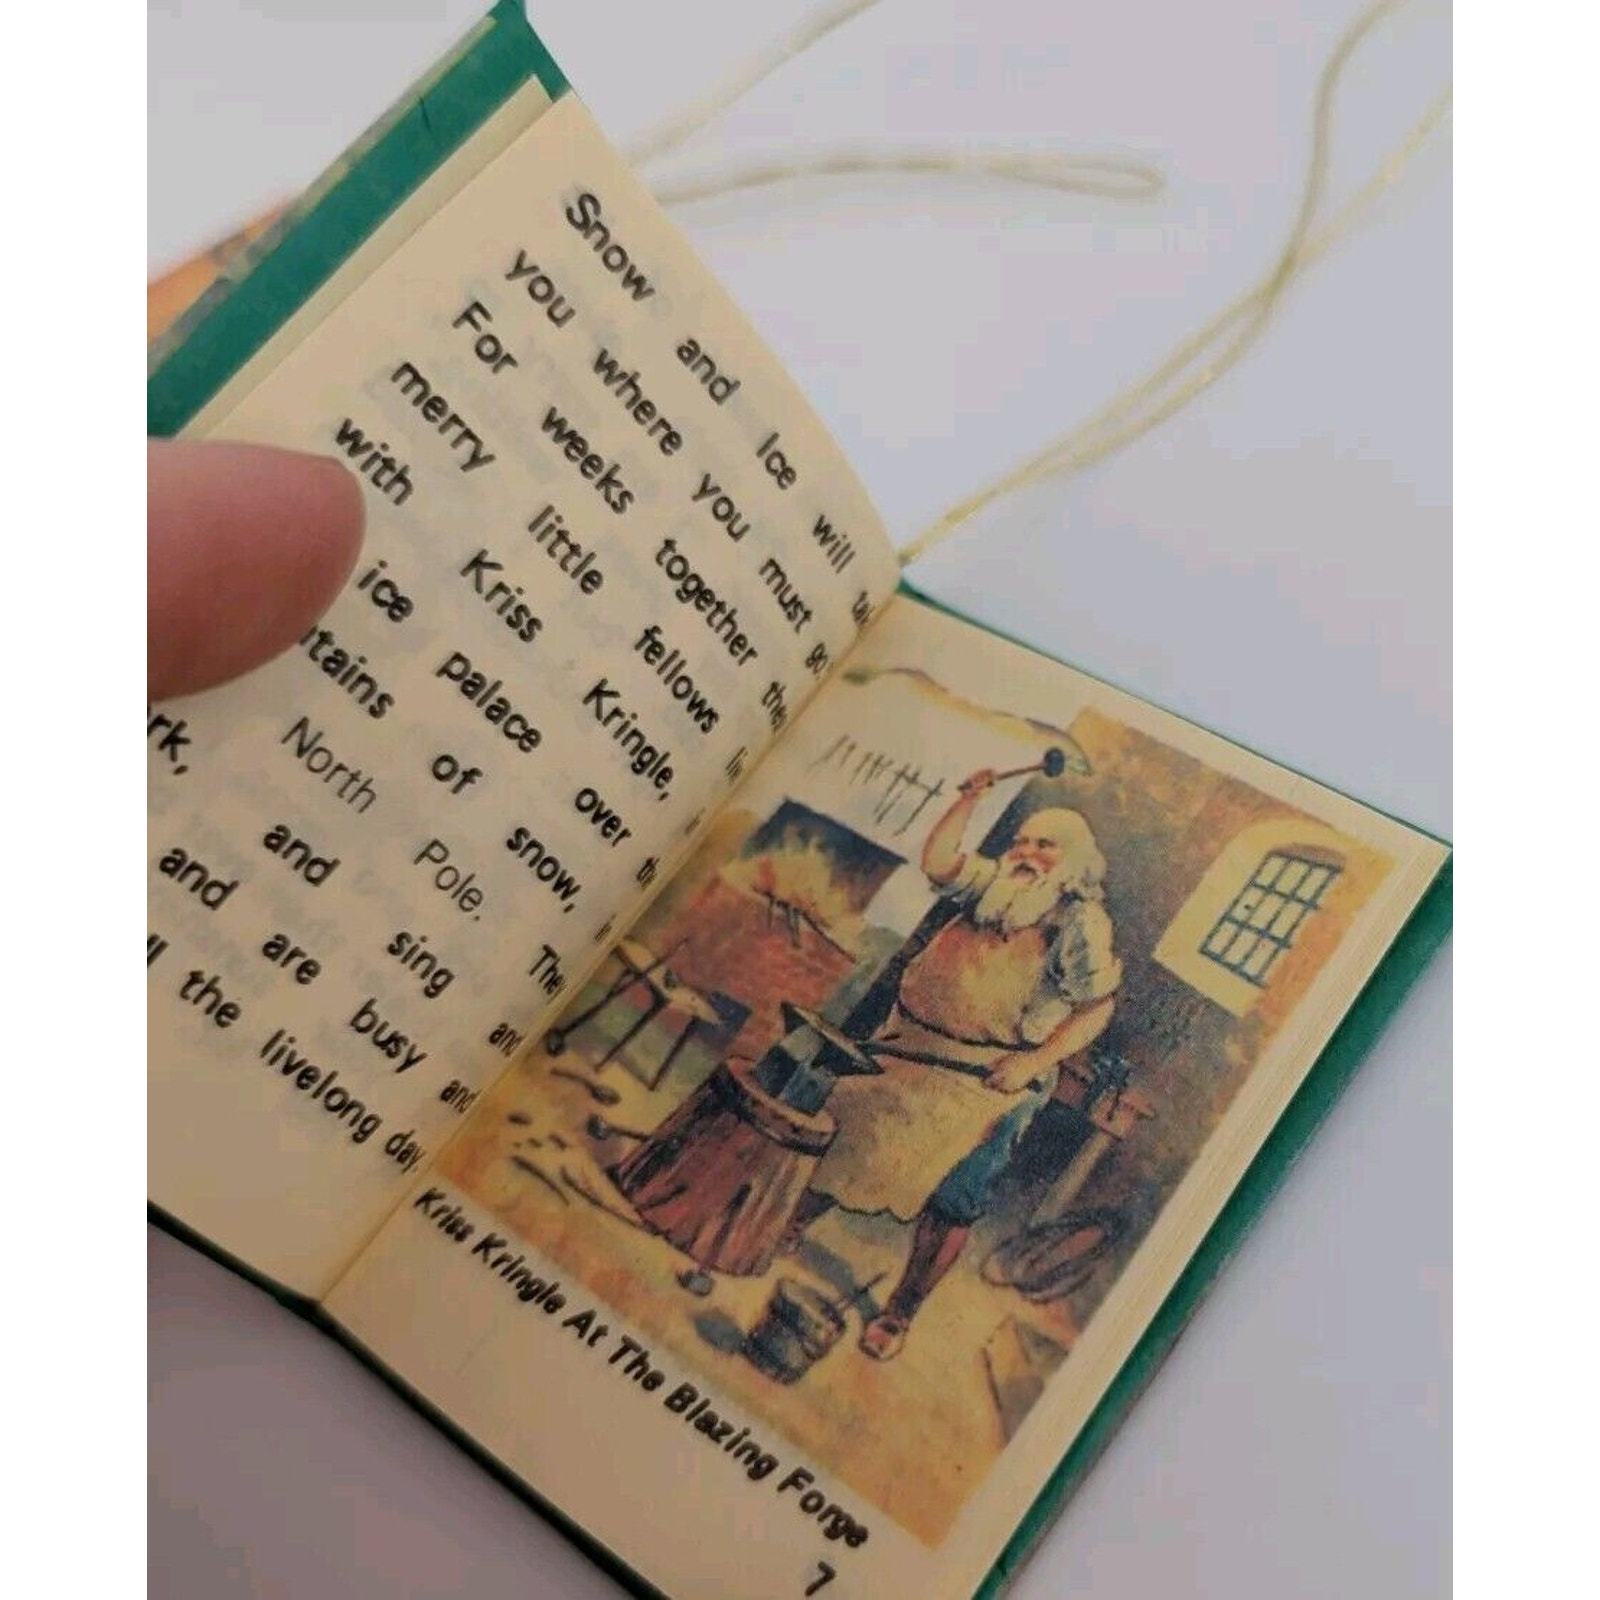 Snow and Ice will
you where you must go.
For weeks together they
merry little fellows
with Kriss Kringle,
ice palace over
of snow,
North Pole. They
and sing and
and are busy and
the livelong day.
Kriss Kringle At The Blazing Forge
7